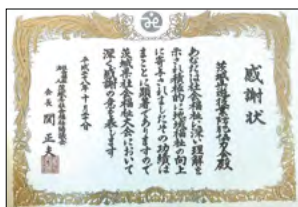 感謝状
茨城
殿
あなたは社会福祉に深い理解を
示され積極的に地域福祉の向上
に寄与されましたその功績は
まことに顕著でありますので
茨城県社会福祉大会において
深く感謝の意を表します
平成二十八年十月二十日
会長 関正夫